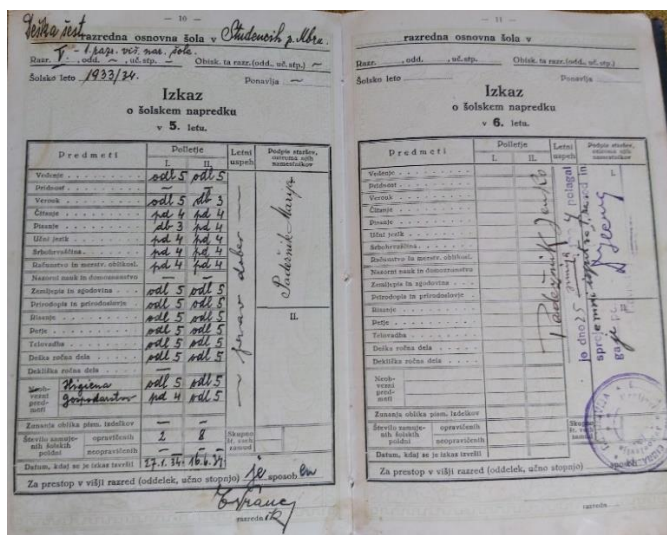 — 10 —
Deška šest razredna osnovna šola v Studencih p. Mbra.
Razr. V. - I. razr. viš. nar. šole.
, odd. ~ , uč. stp. ~ Obisk. ta razr. (odd., uč. stp.) ~
Šolsko leto 1933/34. Ponavlja ~
Izkaz
o šolskem napredku
v 5. letu.
Predmeti Polletje I. II. Letni uspeh Podpis staršev, oziroma njih namestnikov
Vedenje odl 5 odl 5
Pridnost — —
Verouk odl 5 db 3
Čitanje pd 4 pd 4
Pisanje db 3 pd 4
Učni jezik pd 4 pd 4
Srbohrvaščina pd 4 pd 4
Računstvo in geometr. oblikosl. pd 4 pd 4
Nazorni nauk in domoznanstvo — —
Zemljepis in zgodovina odl 5 odl 5
Prirodopis in prirodoslovje odl 5 odl 5
Risanje odl 5 odl 5
Petje odl 5 odl 5
Telovadba odl 5 odl 5
Deška ročna dela odl 5 odl 5
Deklška ročna dela — —
Neobvezni predmeti
Higiena odl 5 odl 5
Gospodarstvo pd 4 odl 5
~ prav dober ~
Padežnik Marija
II.
Zunanja oblika pism. izdelkov — —
Število zamujenih šolskih poldni opravičenih 2 8
neopravičenih — —
Skupno št. vseh zamud
Datum, kdaj se je izkaz izročil 27.1.34. 16.6.34
Za prestop v višji razred (oddelek, učno stopnjo) je sposoben
razrednik
— 11 —
razredna osnovna šola v
Razr. , odd. , uč. stp. Obisk. ta razr. (odd., uč. stp.)
Šolsko leto Ponavlja
Izkaz
o šolskem napredku
v 6. letu.
Predmeti Polletje I. II. Letni uspeh Podpis staršev, oziroma njih namestnikov
Vedenje
Pridnost
Verouk
Čitanje
Pisanje
Učni jezik
Srbohrvaščina
Računstvo in geometr. oblikosl.
Nazorni nauk in domoznanstvo
Zemljepis in zgodovina
Prirodopis in prirodoslovje
Risanje
Petje
Telovadba
Deška ročna dela
Deklška ročna dela
Neobvezni predmeti
Padežnik Janko
je dne 25 polagal
sprejemni
Zunanja oblika pism. izdelkov
Število zamujenih šolskih poldni opravičenih
neopravičenih
Datum, kdaj se je izkaz izročil
Za prestop v višji razred (oddelek, učno stopnjo) sposob
razredn